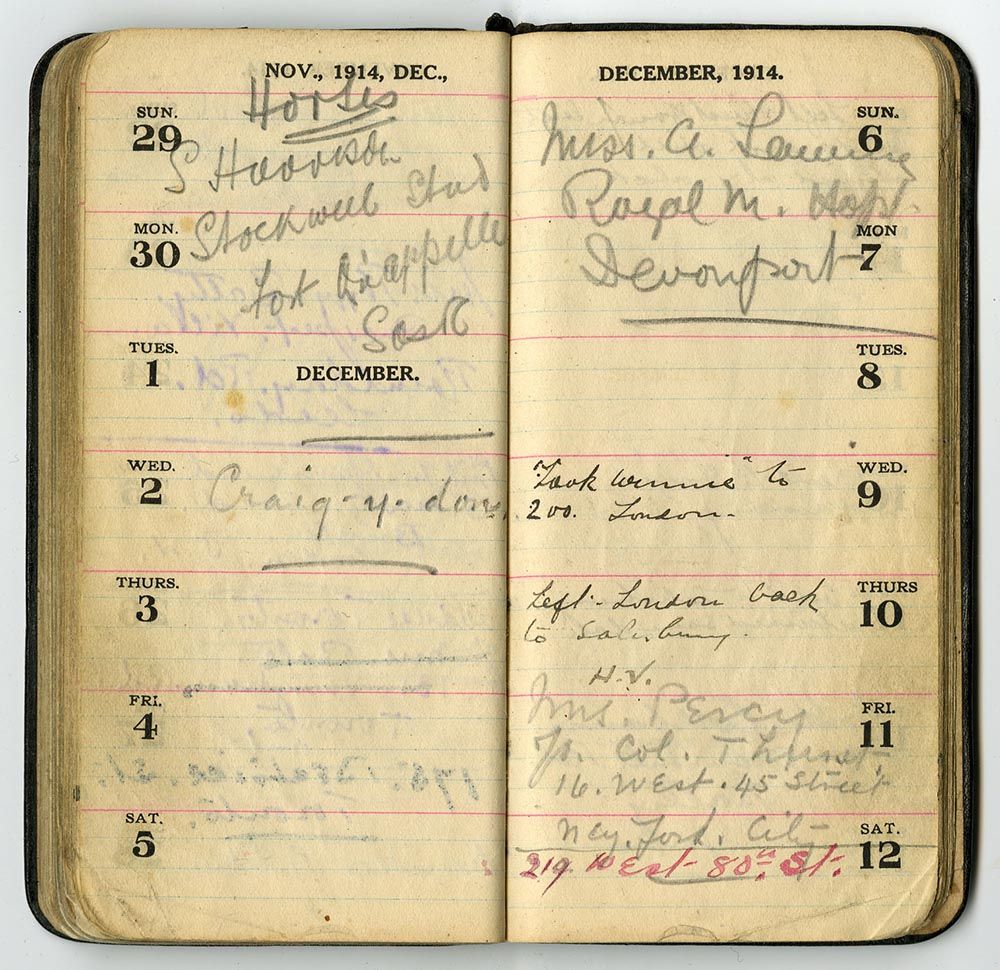 NOV., 1914, DEC.,
Horses
SUN.
29
S Harrison
Stockwell Stud
MON.
30
Fort Qu'appelle
Sask
TUES.
1
DECEMBER.
WED.
2
Craig-y-don
THURS.
3
FRI.
4
SAT.
5
DECEMBER, 1914.
SUN.
6
Miss. A.
Royal M. Hosp.
MON
7
Devonport
TUES.
8
WED.
9
"Took winnie" to
zoo. London.
THURS
10
Left London back
to Salisbury.
FRI.
11
Mrs. Percy
Col.
16. West. 45 Street
SAT.
12
New York. City
219 West 80th St.